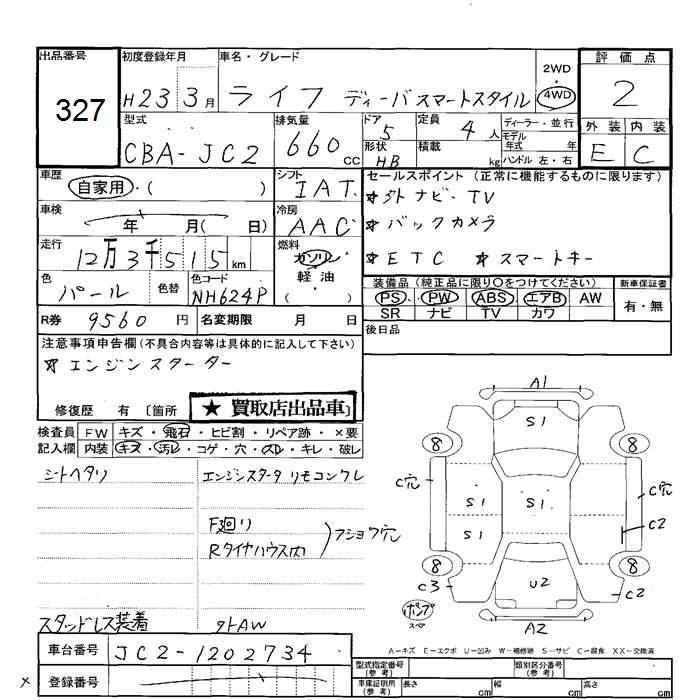 出品番号
327
初度登録年月
H23 3月
車名・グレード
ライフ ディーバスマートスタイル
2WD
・
4WD
評価点
2
外装 内装
E C
型式
CBA-JC2
排気量
660 cc
ドア
5
定員
4人
形状
HB
積載
kg
ディーラー・並行
モデル
年式 年
ハンドル 左・右
車歴
自家用・( )
シフト
IAT
車検
年 月( 日)
冷房
AAC
走行
12万3千515km
燃料
ガソリン
軽油
( )
色
パール
色替
色コード
NH624P
R券 9560 円
名変期限 月 日
セールスポイント (正常に機能するものに限ります)
☆外ナビ・TV
☆バックカメラ
☆ETC ☆スマートキー
装備品 (純正品に限り○をつけてください)
新車保証書
PS PW ABS エアB AW
SR ナビ TV カワ
有・無
後日品
注意事項申告欄(不具合内容等は具体的に記入して下さい)
☆エンジンスターター
修復歴 有 〔箇所
★買取店出品車
検査員
記入欄
FW キズ・飛石・ヒビ割・リペア跡・×要
内装 キズ・汚レ・コゲ・穴・スレ・キレ・破レ
シートヘタリ
エンジンスタータリモコンクレ
F廻り
Rタイヤハウス内
フショク穴
スタッドレス装着
外AW
A1
S1
8
8
C穴
C穴
S1
S1
S1
C2
8
8
C3
U2
C2
ポンプ
スペア
A2
A-キズ E-エクボ U-凹み W-補修跡 S-サビ C-腐食 XX-交換済
車台番号
JC2-1202734
×
登録番号
型式指定番号
(参考)
類別区分番号
(参考)
車庫証明用
(参考)
長さ cm
幅 cm
高さ cm